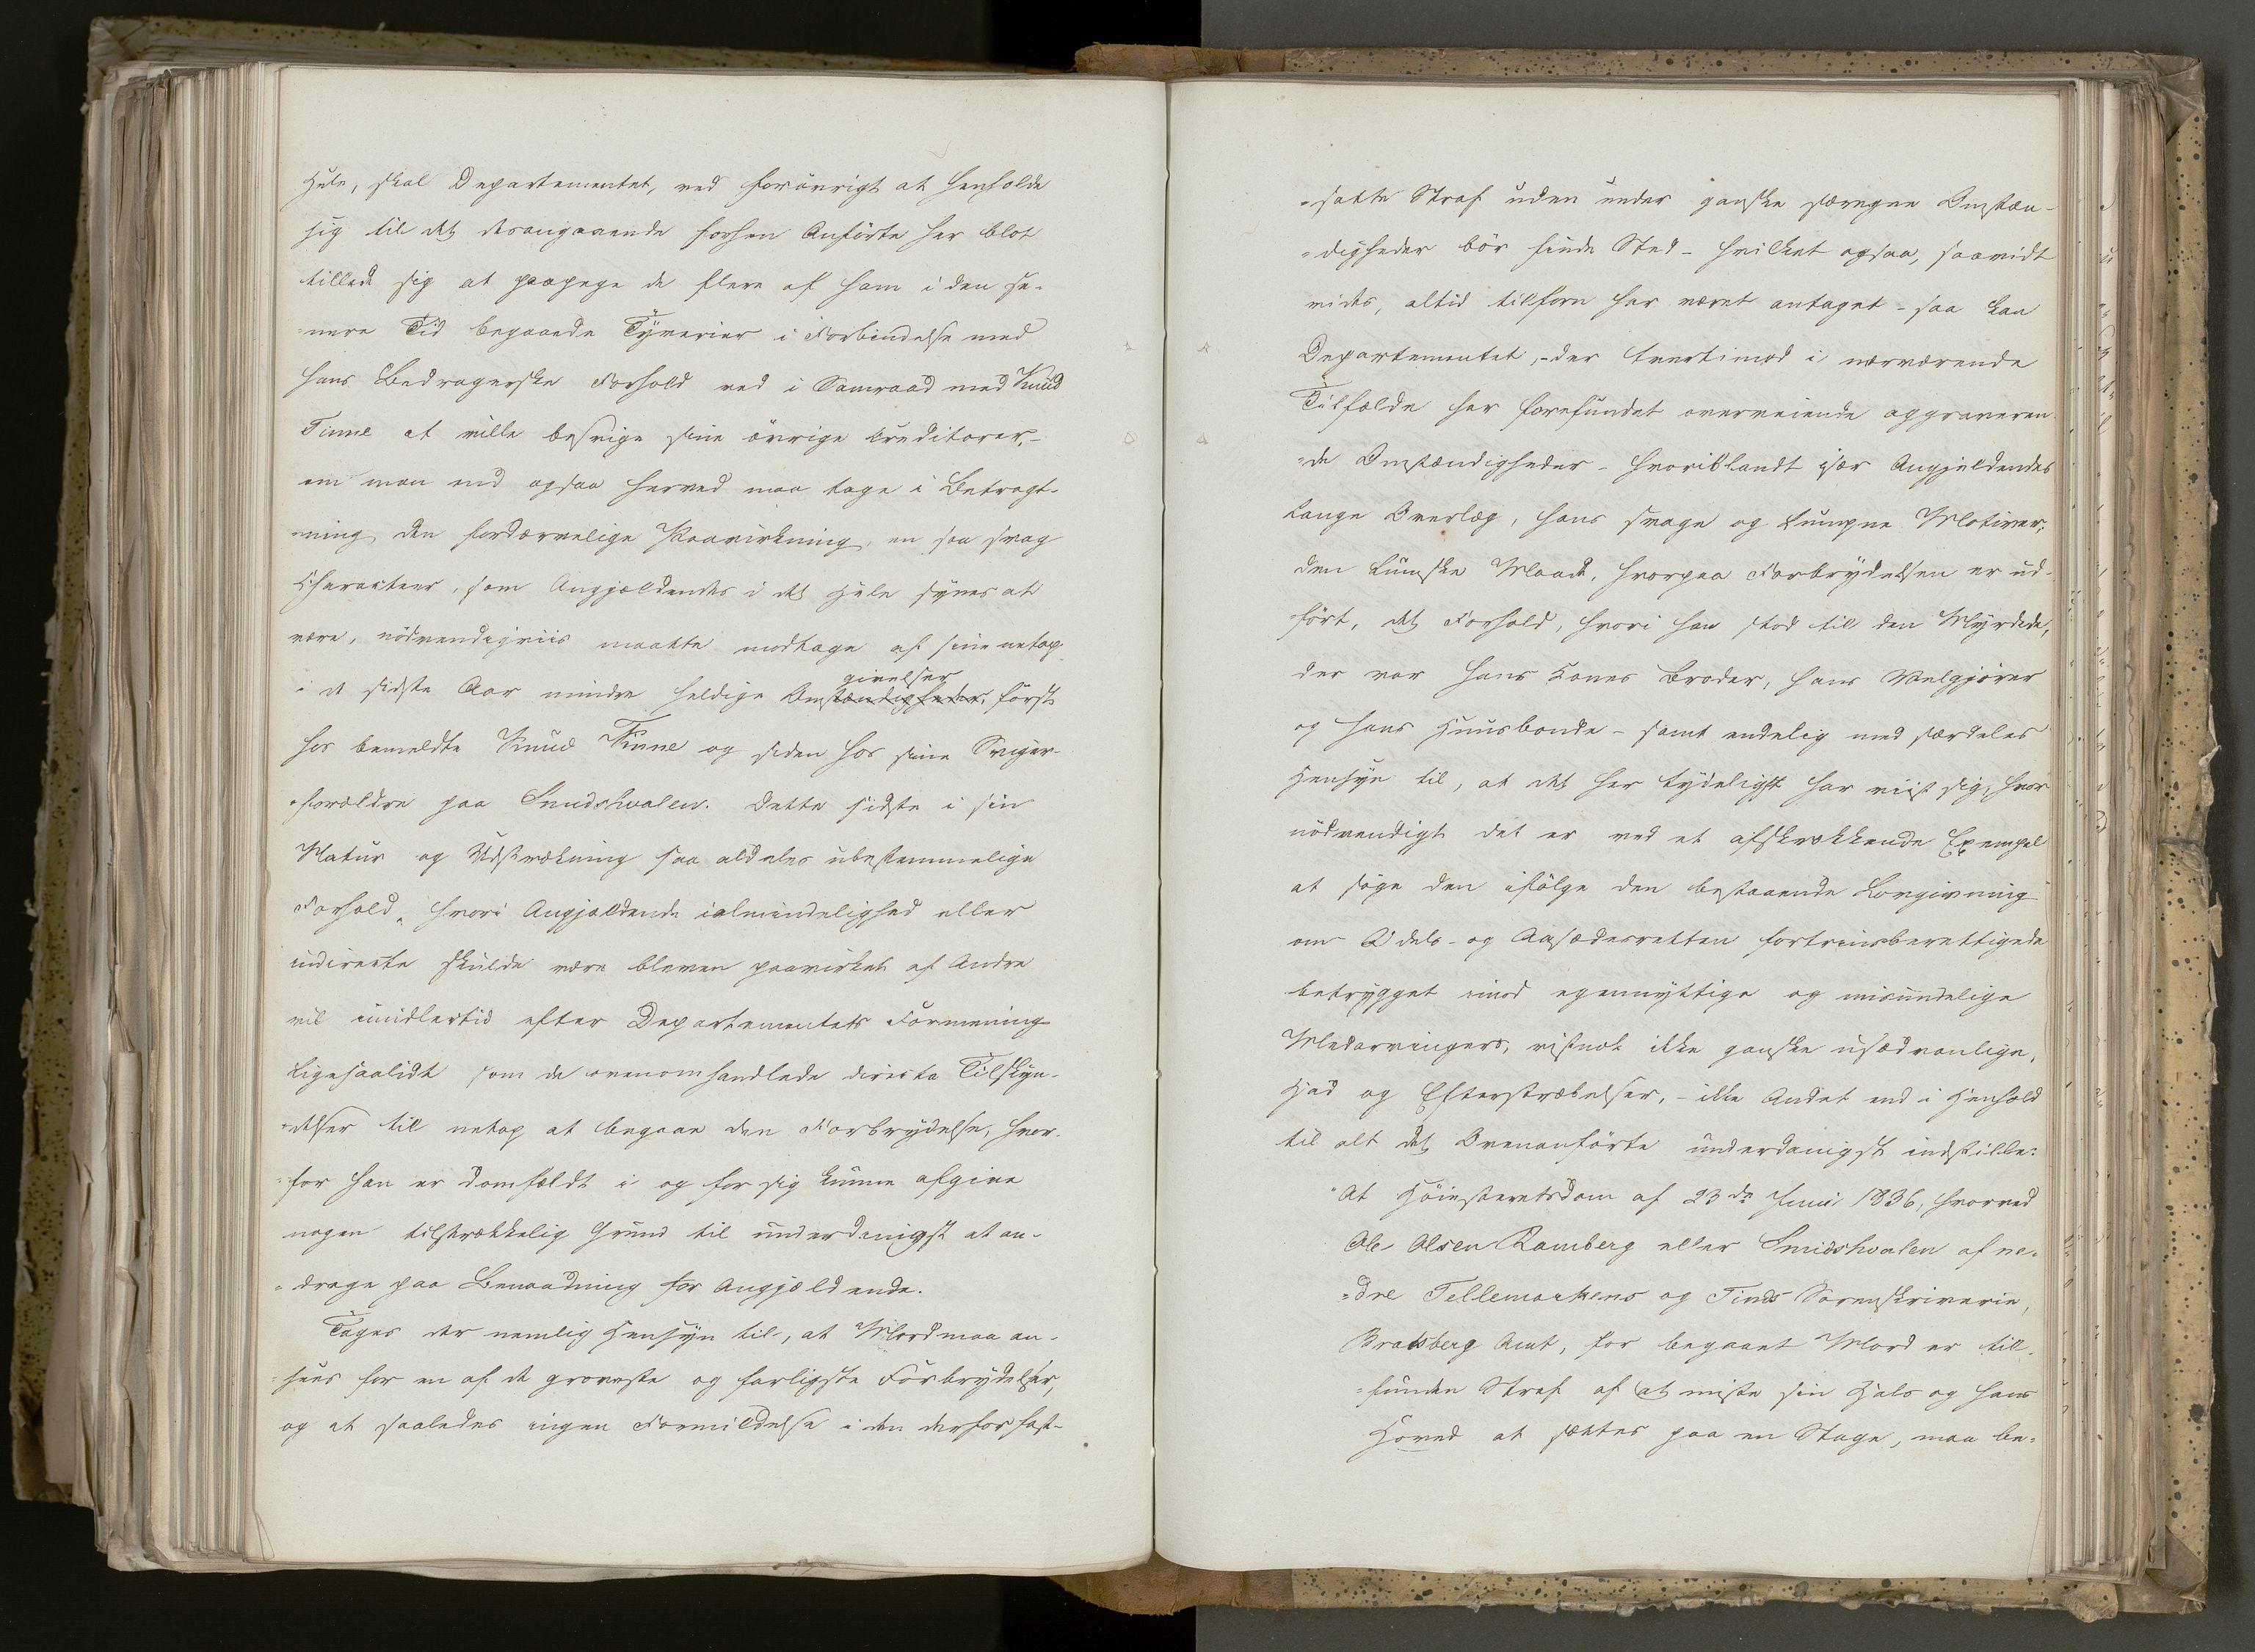 Hele, skal Departementet, ved forövrigt at henholde
sig til det desangaaende forhen Anförte her blot
tillade sig at paapege de flere af ham i den se-
nere Tid begaaede Tyverier i Forbindelse med
hans Bedragerske Forhold ved i Samraad med Knud
Tinne at ville besvige sine övrige Creditorer,-
om man end ogsaa herved maa tage i Betragt-
ning den fordærvelige Paavirkning, en saa svag
Charakteer, som Angjældendes i det Hele synes at
være, nödvendigviis maatte modtage af sine netop
givelser
i de sidste Aar mindre heldige Omstændigheder, först
hos bemeldte Knud Tinne og siden hos sine Sviger-
forældre paa Smidshvalen. Dette sidste i sin
Natur og Udstrækning saa aldeles ubestemmelige
Forhold, hvori Angjældende ialmindelighed eller
indirecte skulde være bleven paavirket af Andre
vil imidlertid efter Departementets Formening
ligesaalidt som de ovenomhandlede directe Tilskyn-
delser til netop at begaae den Forbrydelse, hvor-
for han er domfældt i og for sig kunne afgive
nogen tilstrækkelig Grund til underdanigst at an-
drage paa Benaadning for Angjældende.
Tages der nemlig Hensyn til, at Mord maa an-
sees for en af de groveste og farligste Forbrydelser,
og at saaledes ingen Formildelse i den derfor fast-
satte Straf uden under ganske særegne Omstæn-
digheder bör finde Sted - hvilket ogsaa, saavidt
vides, altid tilforn har været antaget - saa kan
Departementet, - der tvertimod i nærværende
Tilfælde har forefundet overveiende aggraveren
de Omstændigheder - hvoriblandt især Angjeldendes
lange Overlæg, hans svage og lumpne Motiver;
den lumske Maade, hvorpaa Forbrydelsen er ud-
fört, det Forhold, hvori han stod til den Myrdede,
der var hans Kones Broder, hans Velgjörer
og hans Huusbonde - samt endelig med særdeles
Hensyn til, at det her tydeligst har viist sig, hvor
nödvendigt det er ved et afskrækkende Exempel
at söge den ifölge den bestaaende Lovgivning
om Odels- og Aasædesretten fortrinsberettigede
betrygget imod egennyttige og misundelige
Medarvingers, vistnok ikke ganske usædvanlige,
Had og Efterstræbelser, - ikke Andet end i Henhold
til alt det Ovenanförte underdanigst indstille:
"At Höiesteretsdom af 23de Juni 1836, hvorved
Ole Olsen Ramberg eller Smidshvalen af ne-
dre Tellemarkens og Tinds Sorenskriverie,
Bratsberg Amt, for begaaet Mord er til-
funden Straf af at miste sin Hals og hans
Hoved at sættes paa en Stage, maa be-